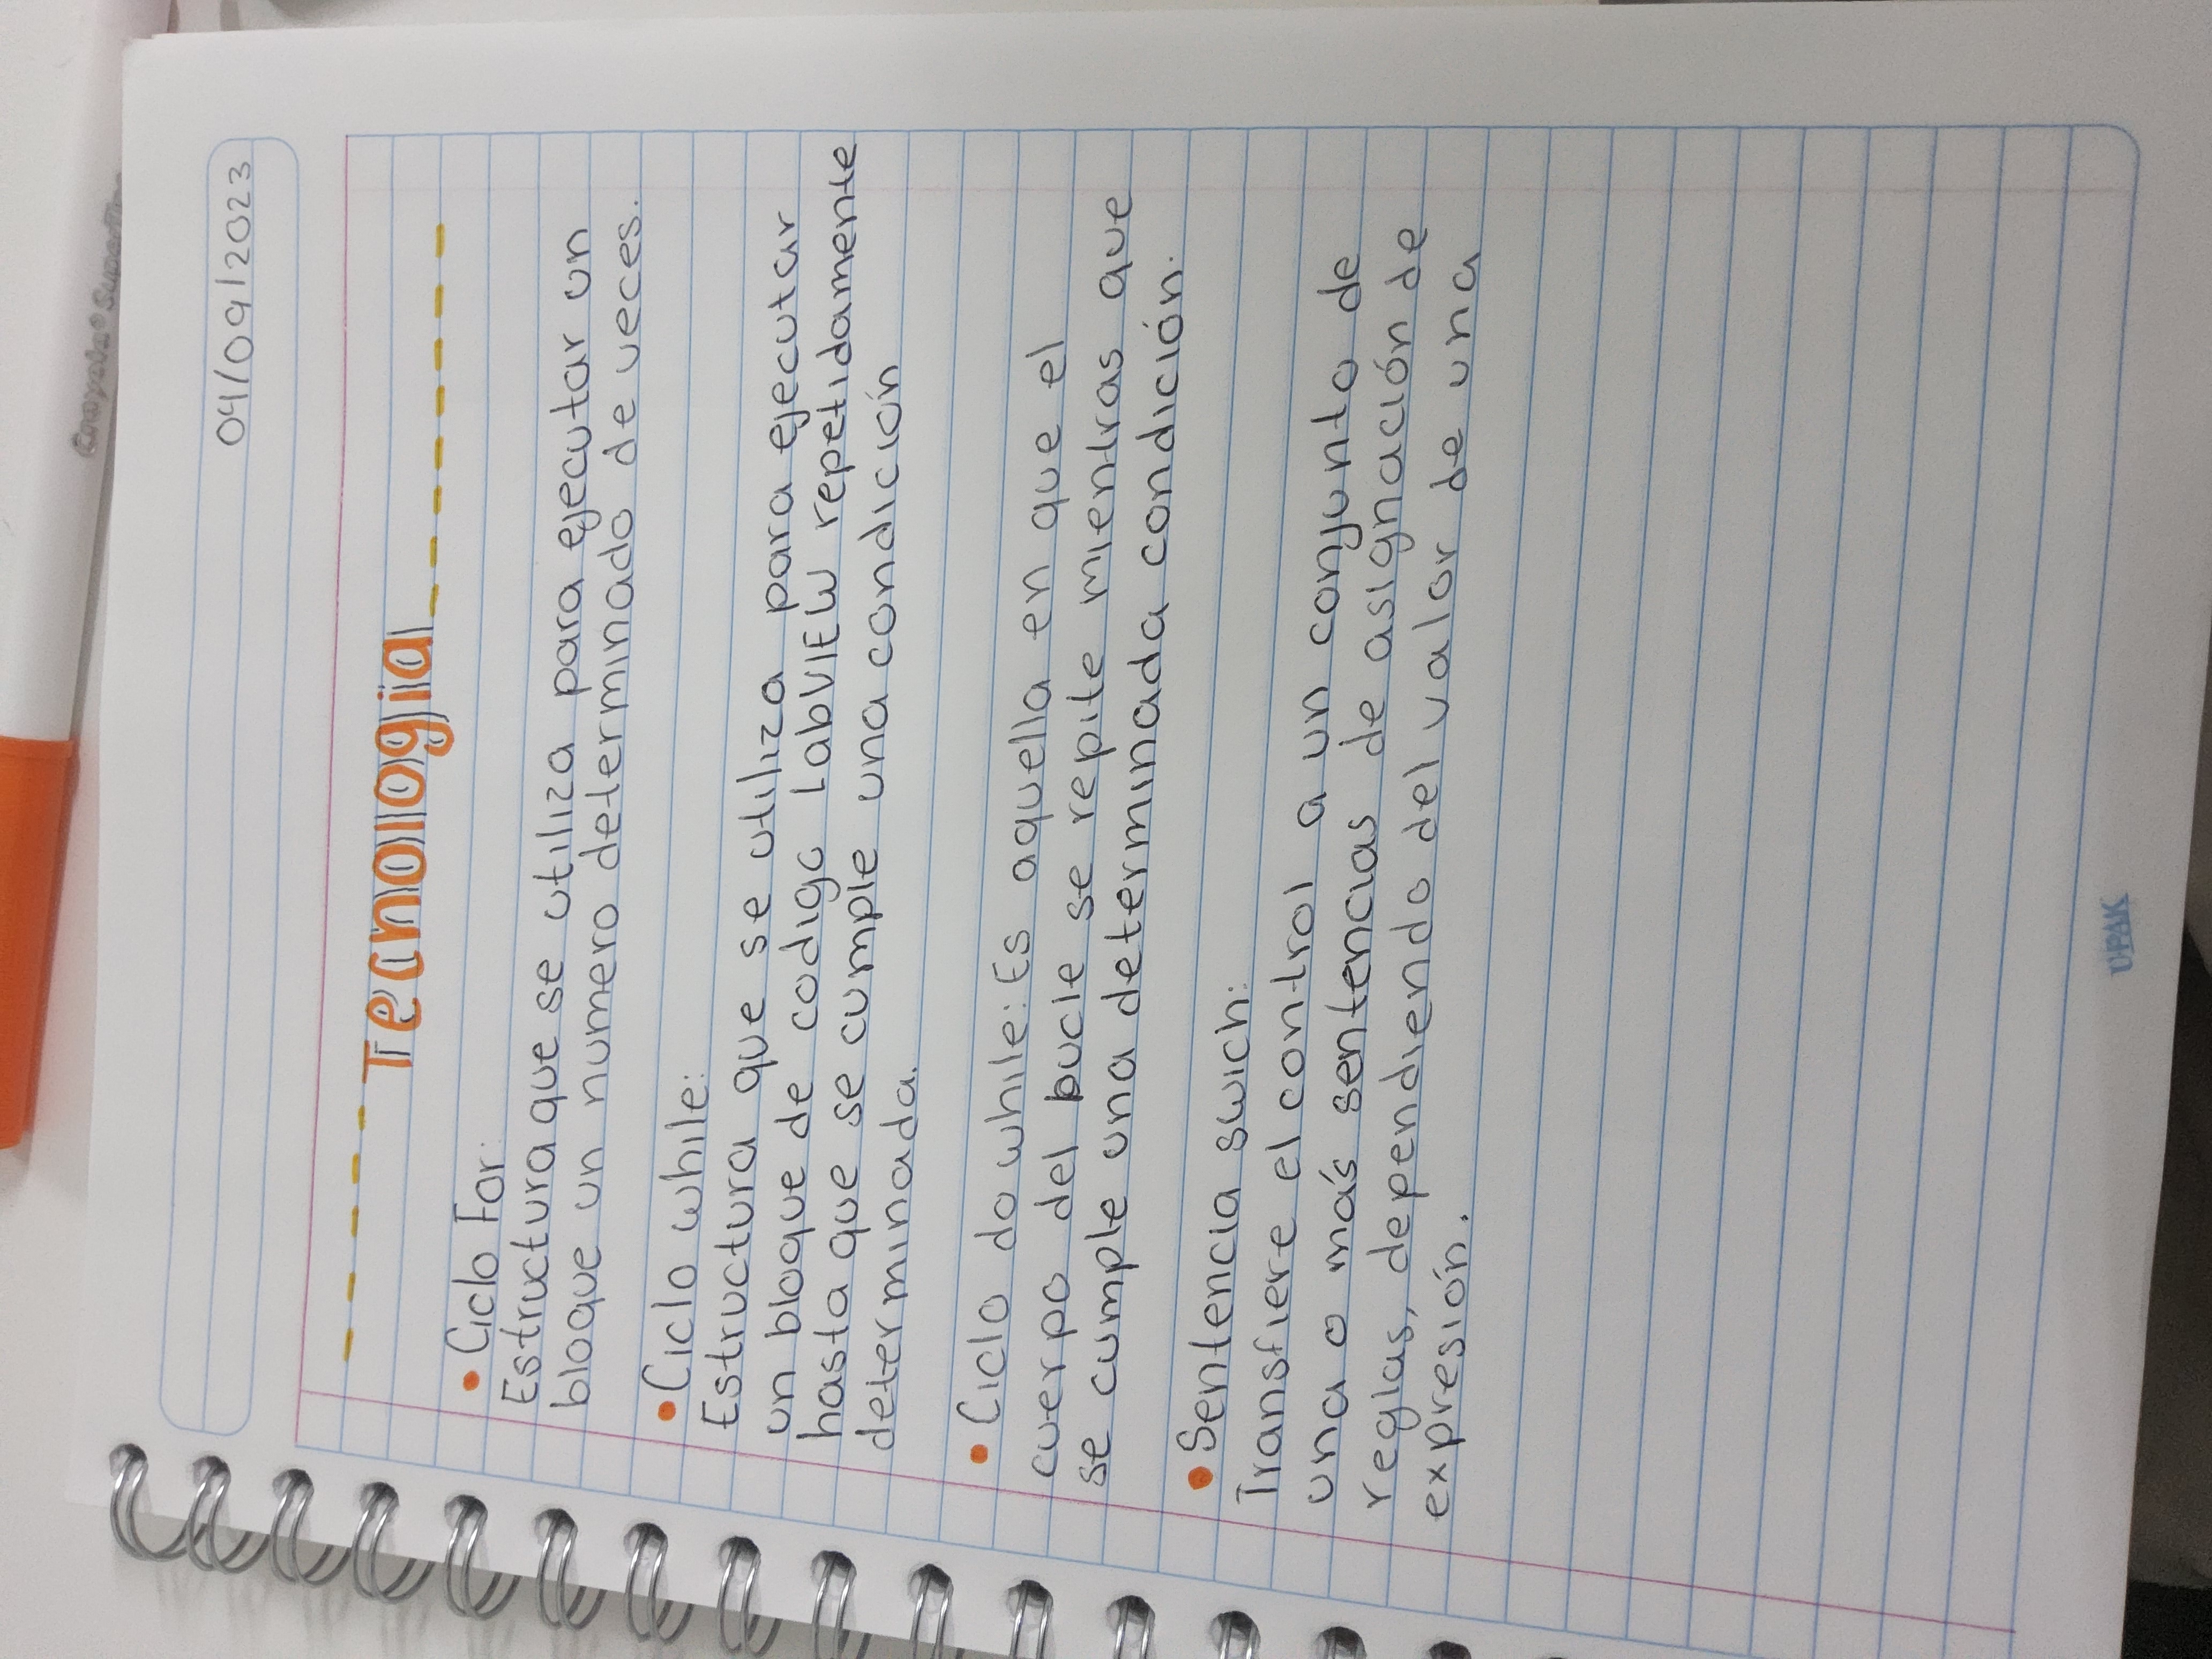 04/09/2023
Tecnología
• Ciclo For:
Estructura que se utiliza para ejecutar un
bloque un numero determinado de veces.
• Ciclo while:
Estructura que se utiliza para ejecutar
un bloque de codigo LabVIEW repetidamente
hasta que se cumple una condición
determinada.
• Ciclo do while: Es aquella en que el
cuerpo del bucle se repite mientras que
se cumple una determinada condición.
• Sentencia swich:
Transfiere el control a un conjunto de
una o más sentencias de asignación de
reglas, dependiendo del valor de una
expresión.
UPAK